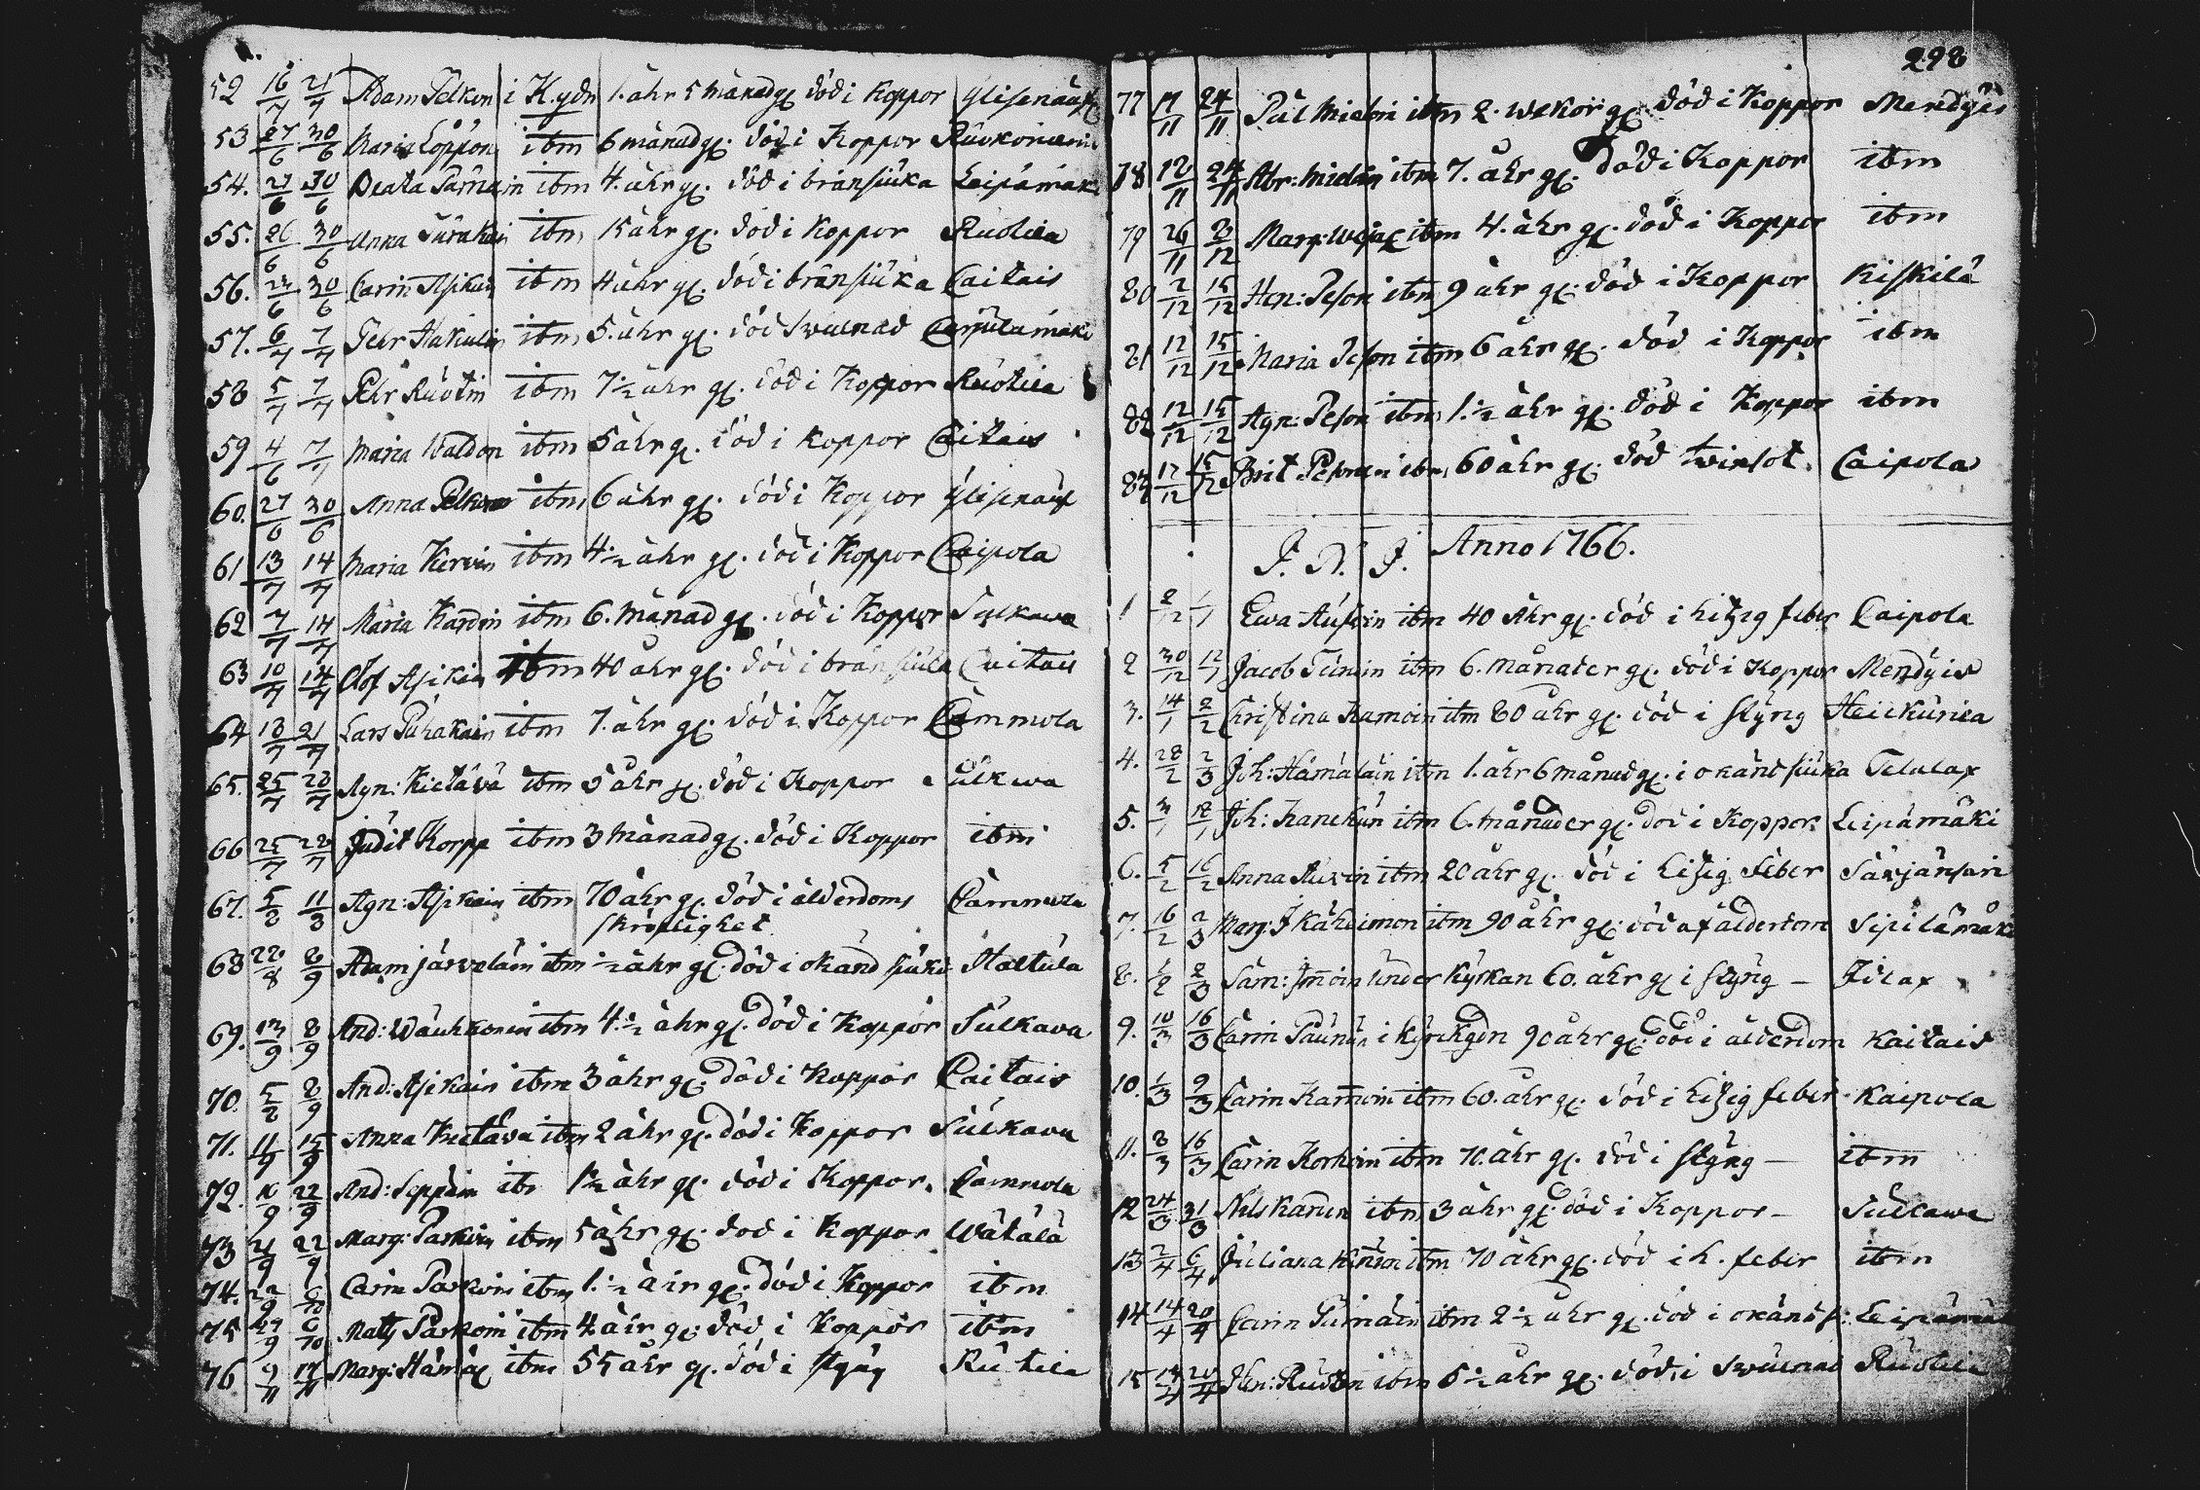 52 16/7 21/7 Adam Pelkon i K.gdn 1. åhr 5 månad gl. död i koppor
53 27/6 30/6 Maria Loppon itm 6 månad gl. död i Koppor
54. 27/6 30/6 Beata itm 4. åhr gl. död i bränsiüka Leipämäki
55. 26/6 30/6 Anna itm 15 åhr gl. död i Koppor Ruotila
56. 23/6 30/6 Carin Asikain itm 4 åhr gl. död i bränsiüka Caitais
57. 6/7 7/7 Pehr Hakulin itm 5. åhr gl. död Swulnad
58 5/7 7/7 Pehr Ruotin itm 7 ½ åhr gl. död i Koppor Ruotila
59 4/6 7/7 Maria Waldon itm 5 åhr gl. död i Koppor Caitais
60. 27/6 30/6 Anna Pelkon itm 6 åhr gl. död i Koppor
61 13/7 14/7 Maria Kervin itm 4 ½ åhr gl. död i Koppor Caipola
62 7/7 14/7 Maria Kardin itm 6. månad gl. död i Koppor Sulkawa
63 10/7 14/7 Olof Asikain itm 40 åhr gl. död i bränsiüka Caitais
64 13/7 21/7 Lars Puhakain itm 7. åhr gl. död i Koppor Cammola
65. 25/7 28/7 Agn: Kietävä itm 5 åhr gl. död i Koppor Sulkwa
66 25/7 28/7 Judit Korpp itm 3 månad gl. död i Koppor itm
67. 5/8 11/8 Agn: Asikain itm 70 åhr gl. död i ålderdoms Cammola
skröplighet
68 22/8 8/9 Adam järveläin itm ½ åhr gl. död i okänd siüka Haltula
69. 8/9 And: Wauhkonen itm 4. ½ åhr gl. död i Koppor Sulkava
70. 5/8 8/9 And: Asikain itm 3 åhr gl. död i koppor Caitais
71. 11/9 15/9 Anna Kietävä itm 2 åhr gl. död i koppor Sulkava
72. 16/9 22/9 And: Seppäin itm 1 ½ åhr gl. död i Koppor. Cammola
73 21/9 22/9 Marg: Parkoin itm 5 åhr gl. död i koppor Wätälä
74. 22/9 6/10 Carin Parkoin itm 1. ½ åhr gl. död i Koppor itm
75 27/9 6/10 Matts Parkoin itm 4 åhr gl. död i Koppor itm
76 9/11 17/11 Marg: Hämäl itm 55 åhr gl. död i styng Rutila
298
77 17/11 24/11 Pål Mielon itm 2. wekor gl. död i Koppor Mendÿis
78 12/11 24/11 Abr: Mielon itm 7. åhr gl. död i Koppor itm
79 26/11 2/12 Marg: itm 4. åhr gl. död i Koppor itm
80 2/12 15/12 Hen: Peson itm 9 åhr gl. död i Koppor Kiskilä
81 12/12 15/12 Maria Peson itm 6 åhr gl. död i Koppor itm
82 12/12 15/12 Agn: Peson itm 1. ½ åhr gl. död i Koppor itm
83 12/12 15/12 Brit itm 60 åhr gl. död twinsot. Caipola
J. N. J. Anno 1766.
1 2/12 1/1 Ewa itm 40 åhr gl. död i hitzig feber Caipola
2 30/12 12/1 Jacob itm 6. månader gl. död i koppor Mendÿis
3. 14/1 2/2 Christina Kamoin itm 80 åhr gl. död i styng Heickurila
4. 28/2 2/3 Joh: Hämäläin itm 1. åhr 6 månad gl. i okänd siüka Telalax
5. 3/1 12/1 Joh: itm 6. månader gl. död i koppor Leipämäki
6. 5/2 16/2 Anna itm 20 åhr gl. död i hitzig feber
7. 16/2 2/3 Marg: itm 90 åhr gl. död af ålderdom Sipilämäki
8. 1/2 2/3 Sam: Immoin under kyrkan 60. åhr gl. i styng –
9. 10/3 16/3 Carin Paunin i kyrckgdn 90 åhr gl. död i ålderdom Kaitais
10. 1/3 9/3 Carin Kamoin itm 60. åhr gl. död i hitzig feber. Kaipola
11. 8/3 16/3 Carin Korhoin itm 70. åhr gl. död i styng – itm
12 24/3 31/3 Nils Karuin itm 3 åhr gl. död i Koppor – Sulcawa
13 2/4 6/4 Juliana itm 70 åhr gl. död i h. feber itm
14 14/4 20/4 Carin itm 2 ½ åhr gl. död i okänd s:
15 14/4 20/4 Hen: Ruotin itm 5 ½ åhr gl. död i swulnad Ruotila